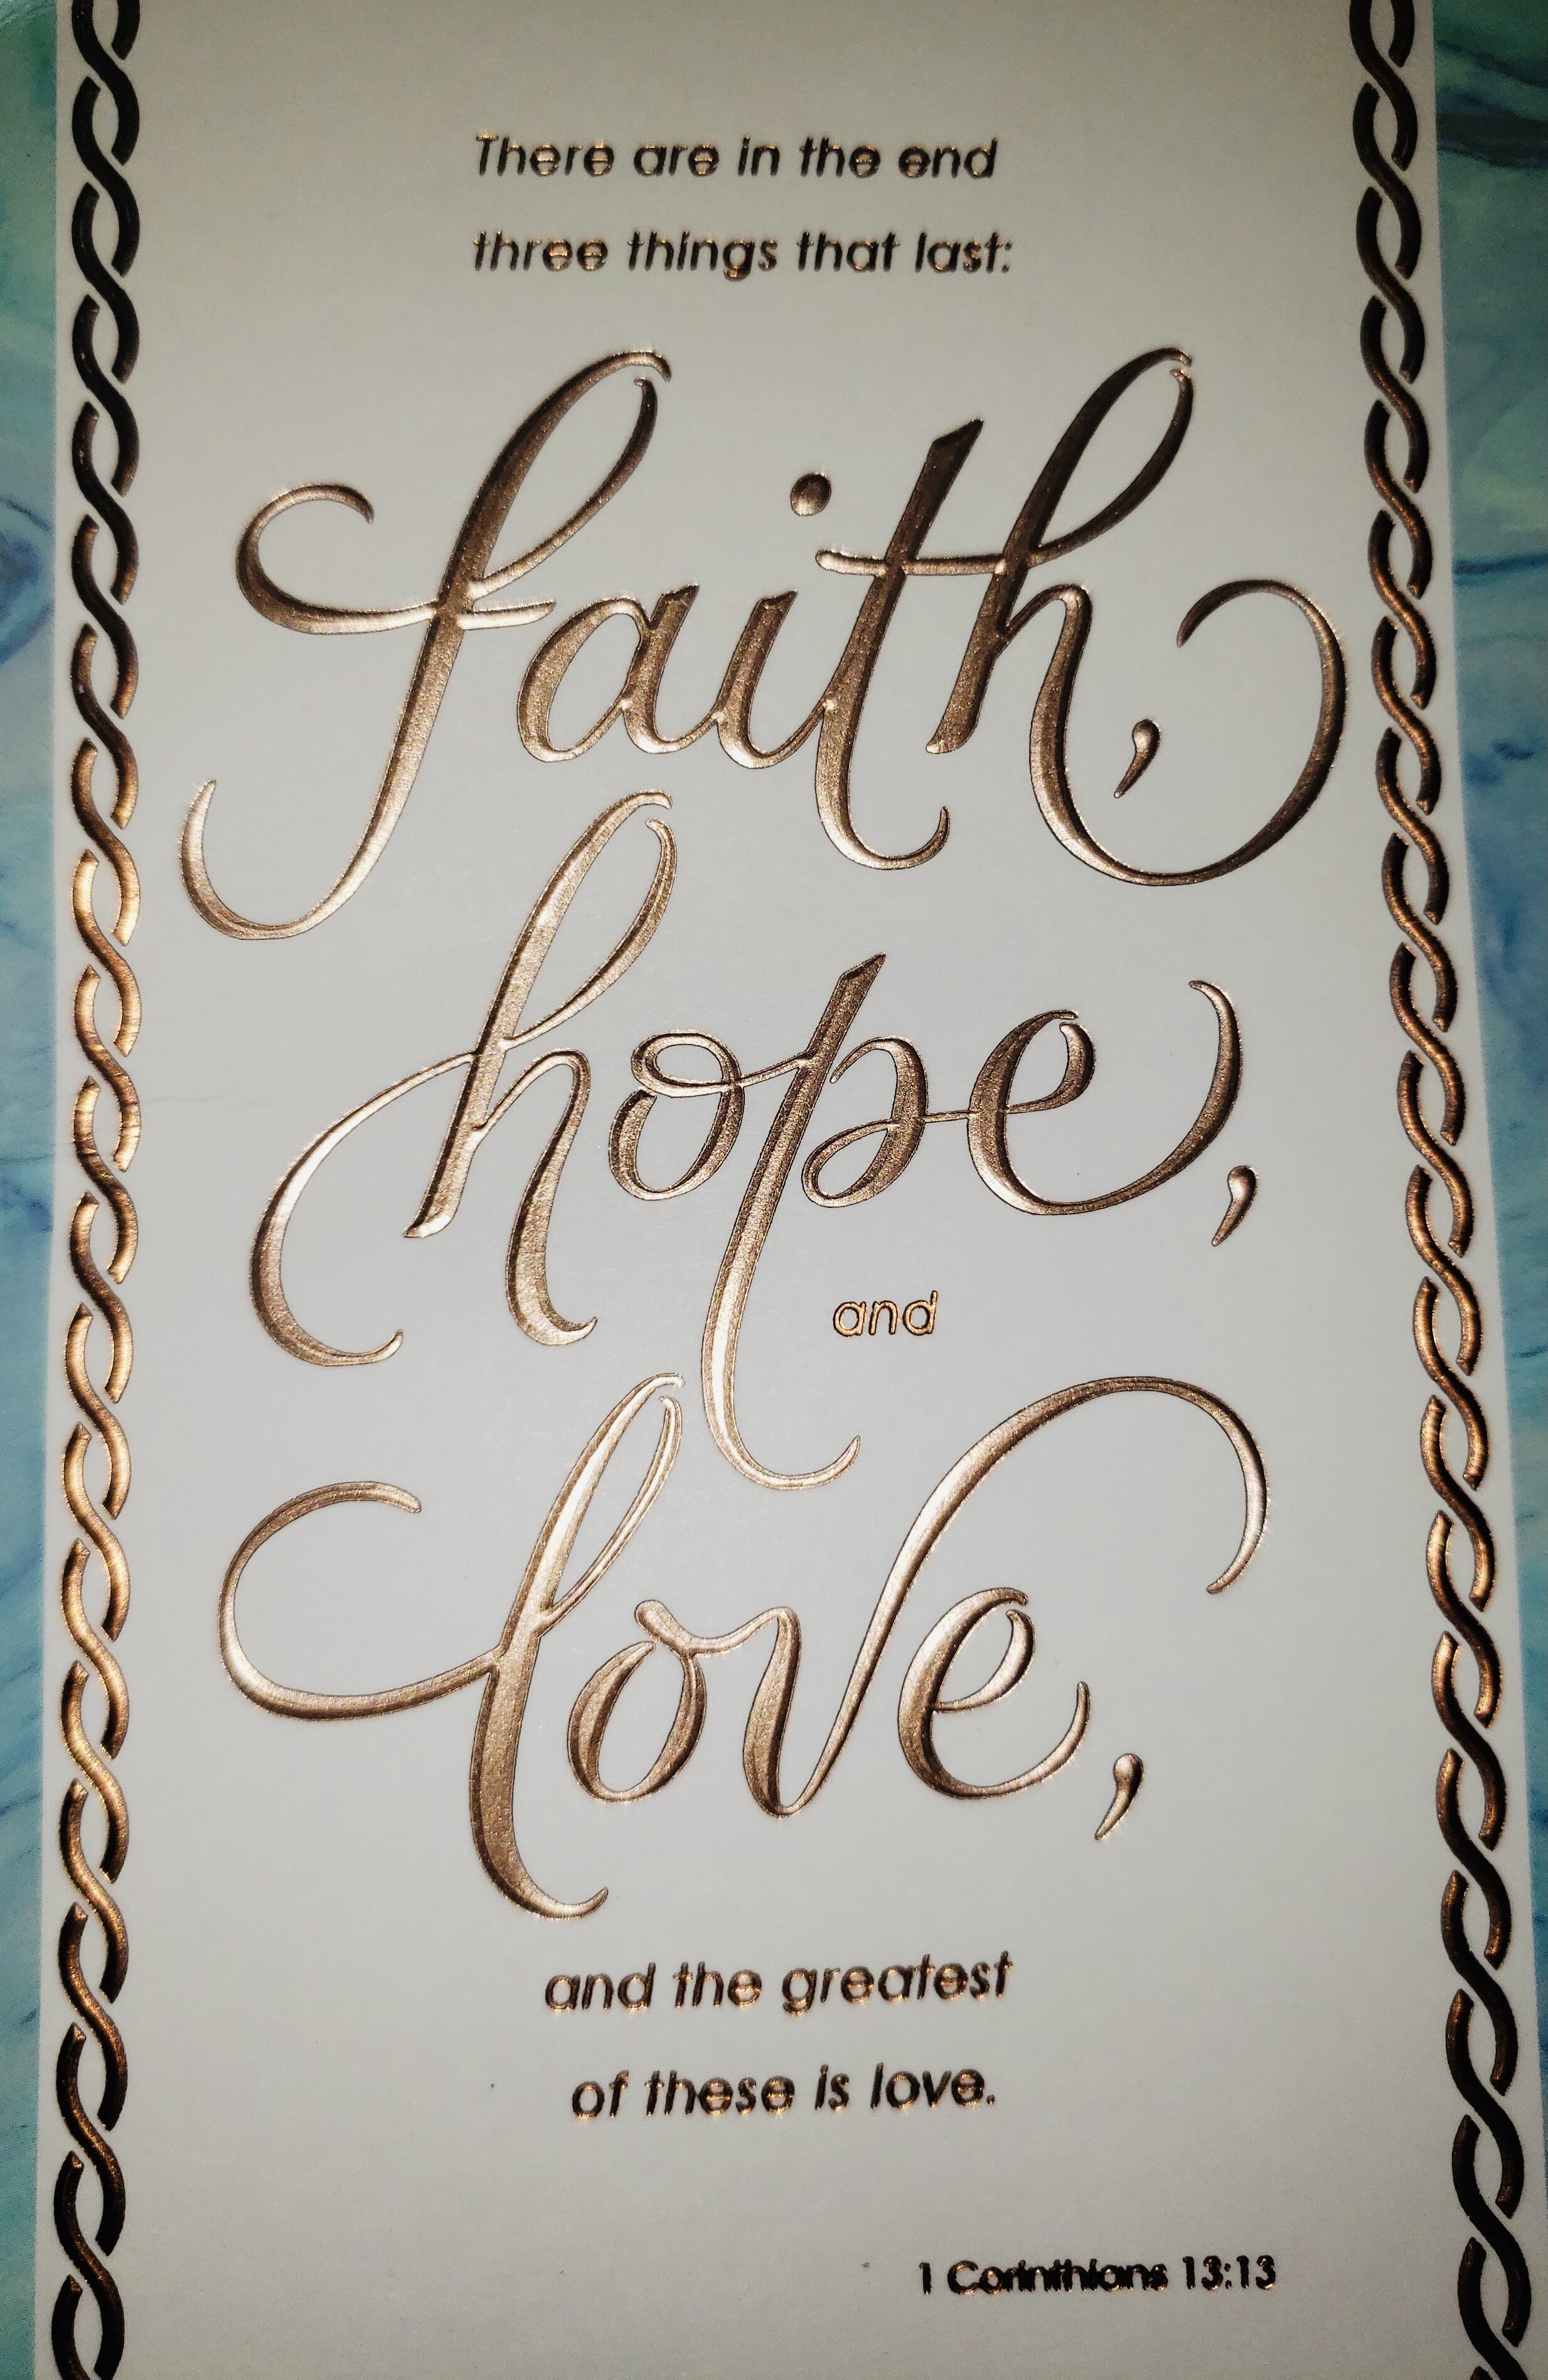 There are in the end
three things that last:
faith,
hope,
and
love,
and the greatest
of these is love.
1 Corinthians 13:13